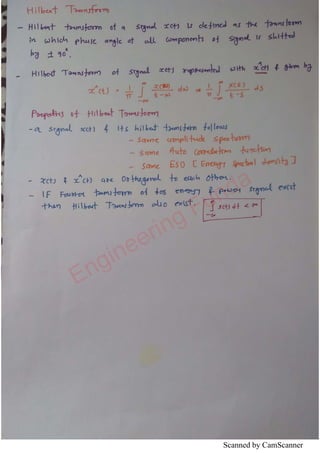 Hilbert Transform
- Hilbert transform of a signal x(t) is defined as the transform
in which phase angle of all components of signal is shifted
by ± 90°.
- Hilbert Transform of signal x(t) represented with x^(t) & given by
x^(t) = 1/π ∫ -∞ ∞ x(u)/(t-u) du = 1/π ∫ -∞ ∞ x(s)/(t-s) ds
Properties of Hilbert Transform
- a signal x(t) & its hilbert transform follows
- same amplitude spectrum
- same Auto correlation function
- same ESD [Energy Spectral density]
- x(t) & x^(t) are Orthogonal to each other.
- IF Fourier transform of for energy & power signal exist
then Hilbert Transform also exist. ∫ -∞ ∞ x(t) dt < ∞
Engineering
Scanned by CamScanner